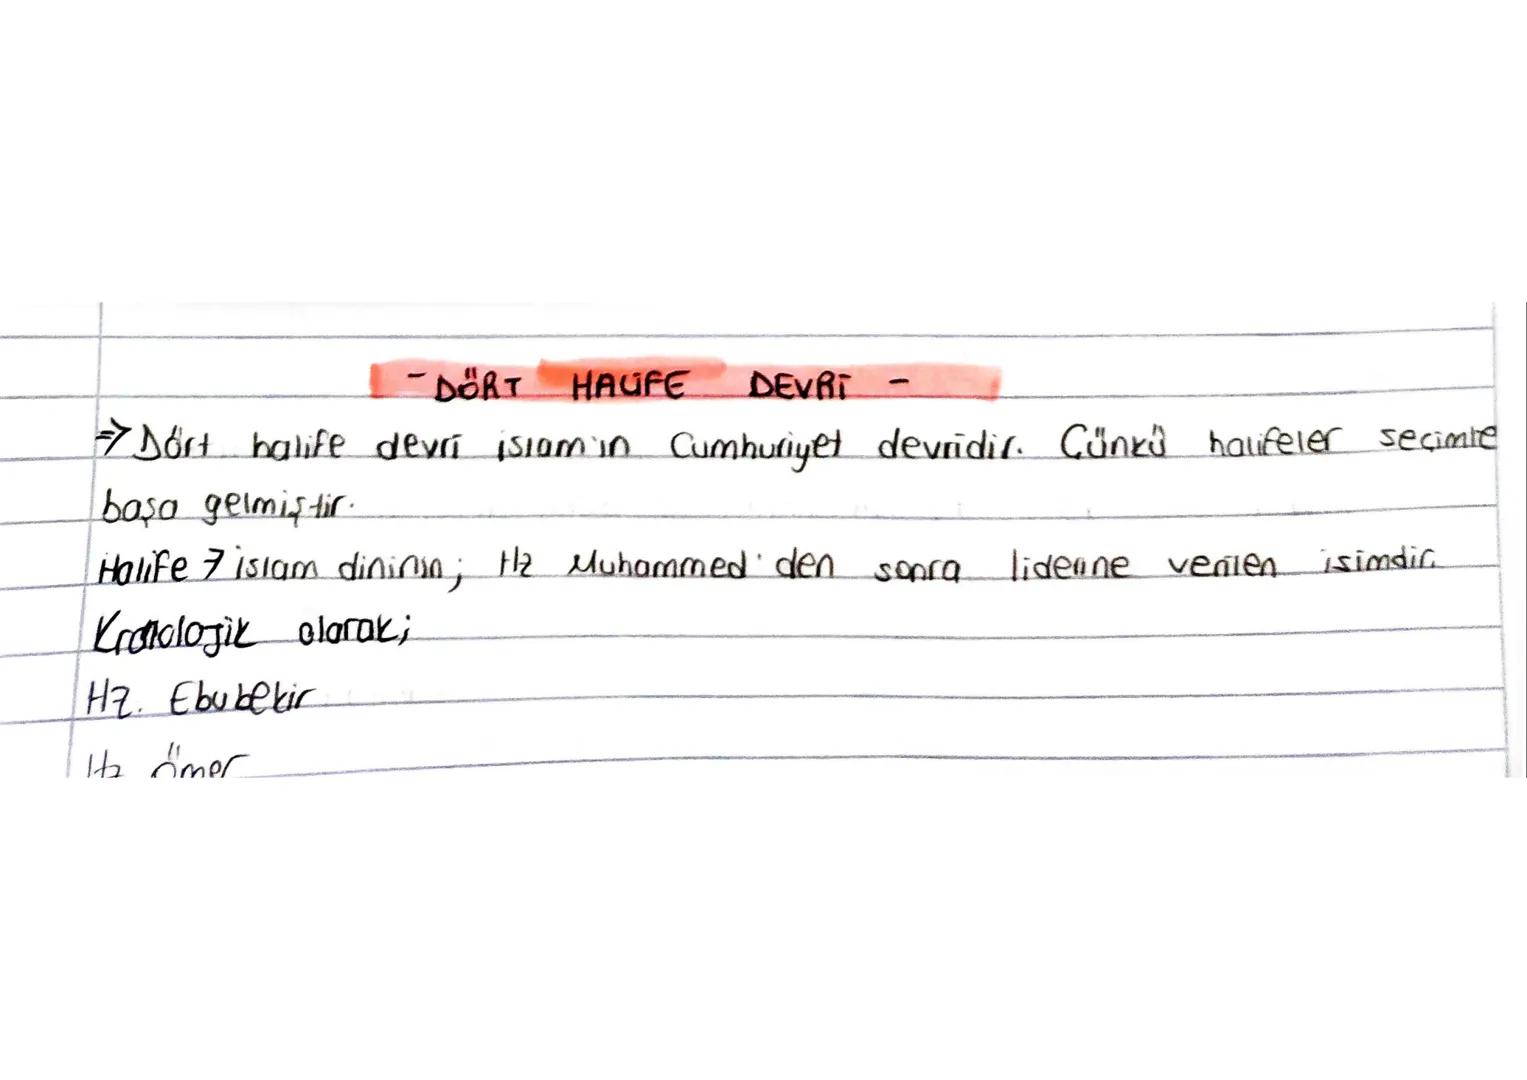 - DÖRT HALİFE DEVRİ -
⇒ Dört halife devri islam'ın Cumhuriyet devridir. Çünkü halifeler seçimle
başa gelmiştir.
Halife → islam dininin; Hz Muhammed'den sonra liderine verilen isimdir.
Kronolojik olarak;
Hz. Ebubekir
Hz ömer